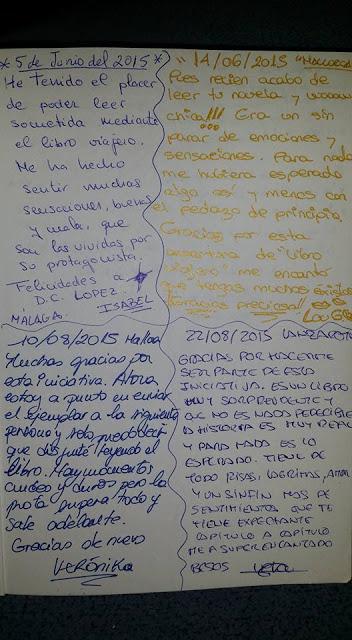 * 5 de Junio del 2015 *
He Tenido el placer
de poder leer
sometida mediante
el libro viajero.
Me ha hecho
sentir muchas
sensaciones, buenas
y mala, que
son las vividas por
su protagonista.
Felicidades a
D.C. LOPEZ.
MÁLAGA. ISABEL
14/06/2015
Pues recien acabo de
leer tu novela y
chica!!! Era un sin
parar de emociones y
sensaciones. Para nada
me hubiera esperado
algo así y menos con
el pedazo de principio!
Gracias por esta
de "libro
viajero" me encanto
que tengas muchos éxitos
preciosa!!
10/08/2015
Muchas gracias por
esta iniciativa. Ahora
estoy a punto en enviar
el ejemplar a la siguiente
persona y solo puedo decir
que disfruté leyendo el
libro. Hay momentos
y duros pero la
prota supera todo y
sale adelante.
Gracias de nuevo
VERÓNIKA
22/08/2015 LANZAROTE
GRACIAS POR HACERME
SER PARTE DE ESTA
INICIATIVA. ES UN LIBRO
MUY SORPRENDENTE Y
QUE NO ES NADA PREDECIBLE
LA HISTORIA ES MUY REAL
Y PARA NADA ES LO
ESPERADO. TIENE DE
TODO RISAS, LAGRIMAS, AMOR
Y UN SINFIN MAS DE
SENTIMIENTOS QUE TE
TIENE EXPECTANTE
CAPITULO A CAPITULO
ME A SUPERENCANTADO
BESOS